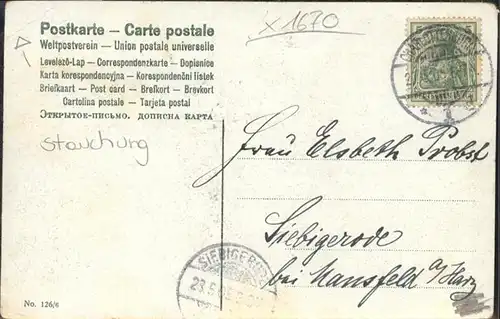 Postkarte – Carte postale
Weltpostverein – Union postale universelle
Levelező-Lap – Correspondenzkarte – Dopisnice
Karta korespondencyjna – Korespondenční lístek
Briefkaart – Post card – Brefkort – Brevkort
Cartolina postale – Tarjeta postal
Открытое-письмо. дописна карта
x 1670
Stauchung
Frau Elsbeth Probst
Siebigerode
bei Mansfeld a/Harz
SIEBIGERODE
23.5.
No. 126/6